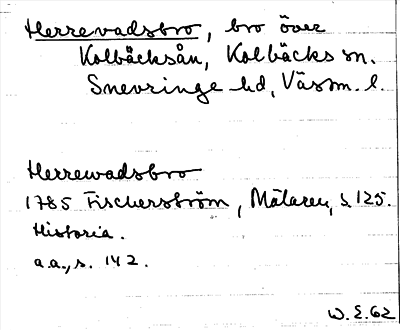 Herrevadsbro, bro över
Kolbäcksån, Kolbäcks sn.
Snevringe hd, Västm. l.
Herrewadsbro
1785 Fischerström, Mälaren, s. 125.
Historia.
a.a., s. 142.
W. E. 62